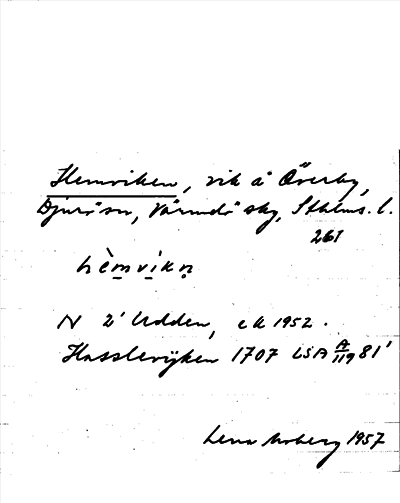 Hemviken, vik å Överby,
Djurö sn, Värmdö skg, Sthlms. l.
261
hèmvikn̥
N 2' Udden, ek 1952.
Hasslevijken 1707 LSA A/119 81'
Lena Moberg 1957